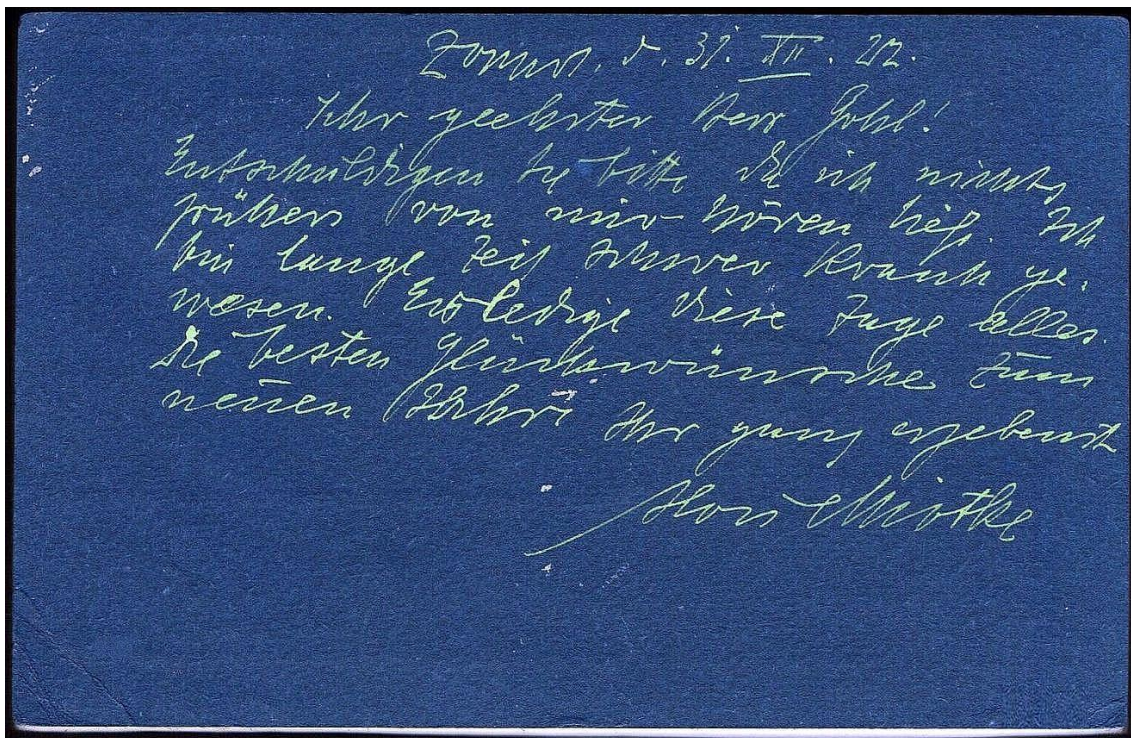 Zoppot, d. 31. XII. 22.
Sehr geehrter Herr Gohl!
Entschuldigen Sie bitte das ich nichts
früher von mir hören ließ. Ich
bin lange Zeit schwer krank ge-
wesen. Erledige diese Tage alles.
Die besten Glückwünsche zum
neuen Jahr! Ihr ganz ergebenst
Miotke